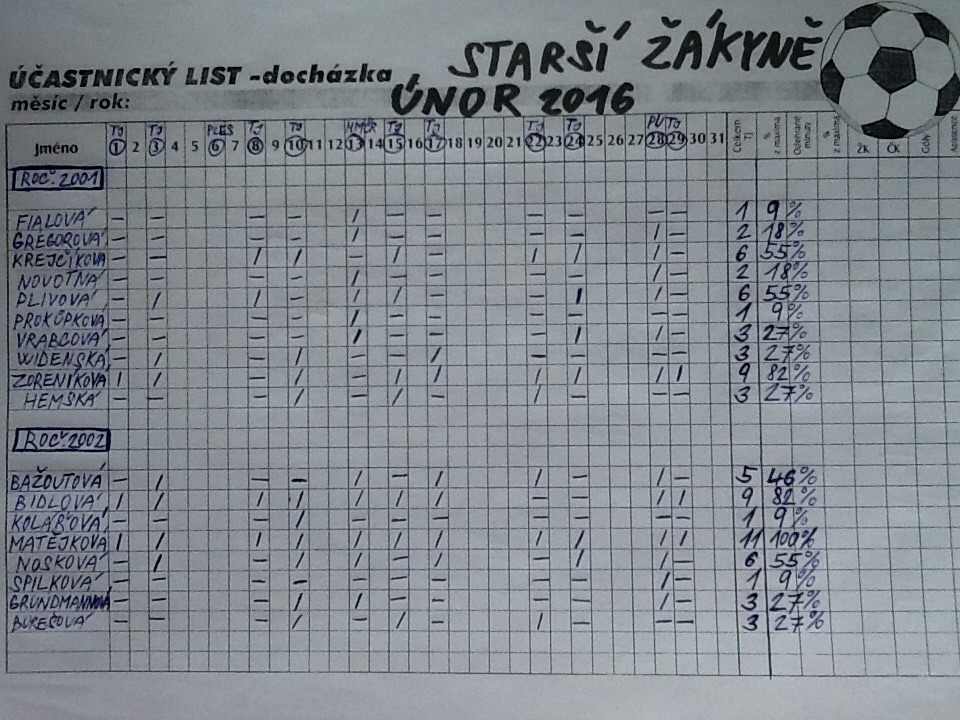 STARŠÍ ŽÁKYNĚ
ÚČASTNICKÝ LIST - docházka
měsíc / rok: ÚNOR 2016
TJ TJ PLES TJ TJ TJ TJ TJ TJ PU TJ
Jméno 1 2 3 4 5 6 7 8 9 10 11 12 13 14 15 16 17 18 19 20 21 22 23 24 25 26 27 28 29 30 31 Celkem TJ % z maxima Odehrané minuty % z maxima ŽK ČK Góly Asistence
ROČ. 2001
FIALOVÁ — — — — / — — — — — — 1 9%
GREGOROVÁ — — — — / — — — — / — 2 18%
KREJČÍKOVÁ — — / / — / — / / / — 6 55%
NOVOTNÁ — — — — / — — — — / — 2 18%
PLÍVOVÁ — / / — / / — — / / — 6 55%
PROKŮPKOVÁ — — — — / — — — — — — 1 9%
VRABCOVÁ — — — — / — — — / / — 3 27%
WIDENSKÁ — / — / — — / — — — — 3 27%
ZDRENÍKOVÁ / / — / — / / / / / / 9 82%
HEMSKÁ — — — / — / — / — — — 3 27%
ROČ. 2002
BAŽOUTOVÁ — / — — / — / / — / — 5 46%
BIDLOVÁ / / / / / / / — — / / 9 82%
KOLÁŘOVÁ — — — / — — — — — — — 1 9%
MATĚJKOVÁ / / / / / / / / / / / 11 100%
NOSKOVÁ — / — / / — / — / / — 6 55%
ŠPILKOVÁ — — — — — — — — — / — 1 9%
GRUNDMANNOVÁ — — — / / — — — — / — 3 27%
BUREŠOVÁ — — — / — / — / — — — 3 27%